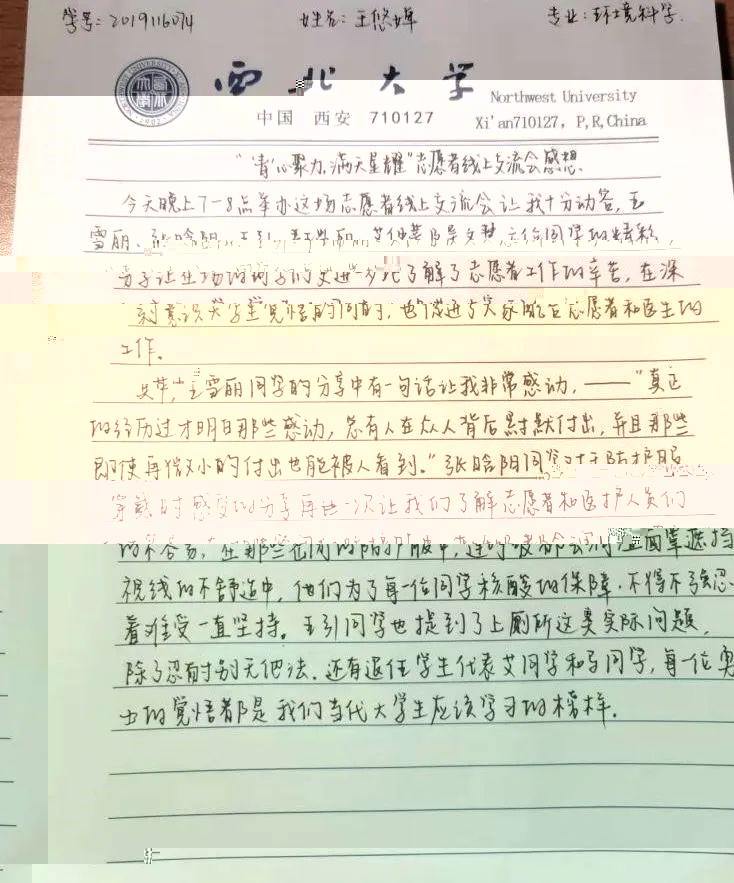 学号：2019116074 姓名：王悠婵 专业：环境科学.
西北大学 Northwest University
中国 西安 710127 Xi'an710127, P,R,China
"青心聚力,满天星耀"志愿者线上交流会感想
今天晚上7-8点举办这场志愿者线上交流会让我十分动容,王
雪丽、张晗阳、王引、
分享让在场的同学们更进一步地了解了志愿者工作的辛苦,在深
刻意识大学生觉悟的同时,也 志愿者和医生的
工作.
其中,王雪丽同学的分享中有一句话让我非常感动,——"真正
的经历过才明白那些感动,总有人在众人背后默默付出,并且那些
即使再微小的付出也能被人看到."张晗阳同学对于防护服
穿戴时感受的分享再一次让我们了解志愿者和医护人员们
的不容易,在那些密闭的防护服中,连呼吸都会 面罩遮挡
视线的不舒适中,他们为了每一位同学核酸的保障,不得不强忍
着难受一直坚持。王引同学也提到了上厕所这类实际问题,
除了忍耐别无他法.还有退伍学生代表艾同学和马同学,每一位勇
士的觉悟都是我们当代大学生应该学习的榜样.